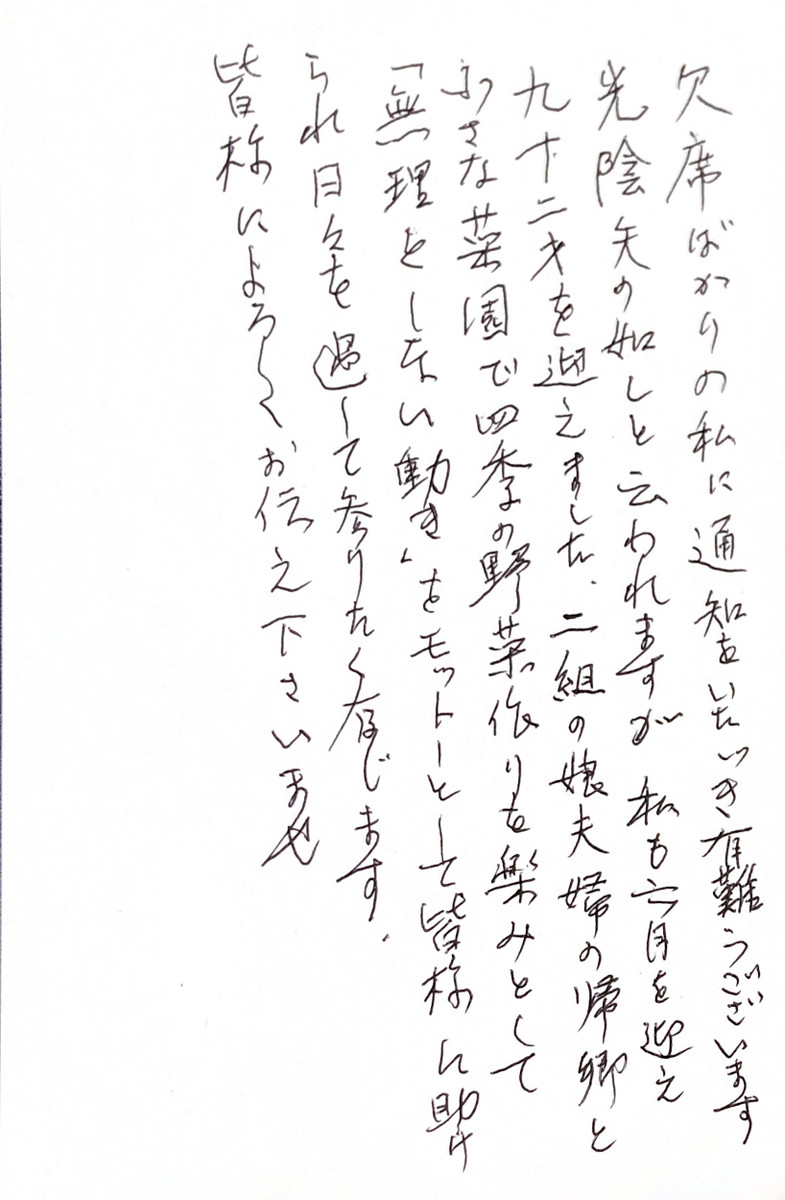 欠席ばかりの私に通知をいたゞき有難うございます
光陰矢の如しと云われますが私も六月を迎え
九十二才を迎えました、二組の娘夫婦の帰郷と
小さな菜園で四季の野菜作りを楽みとして
「無理をしない動き」をモットーとして皆様に助け
られ日々を過して参りたく存じます、
皆様によろしくお伝え下さいませ